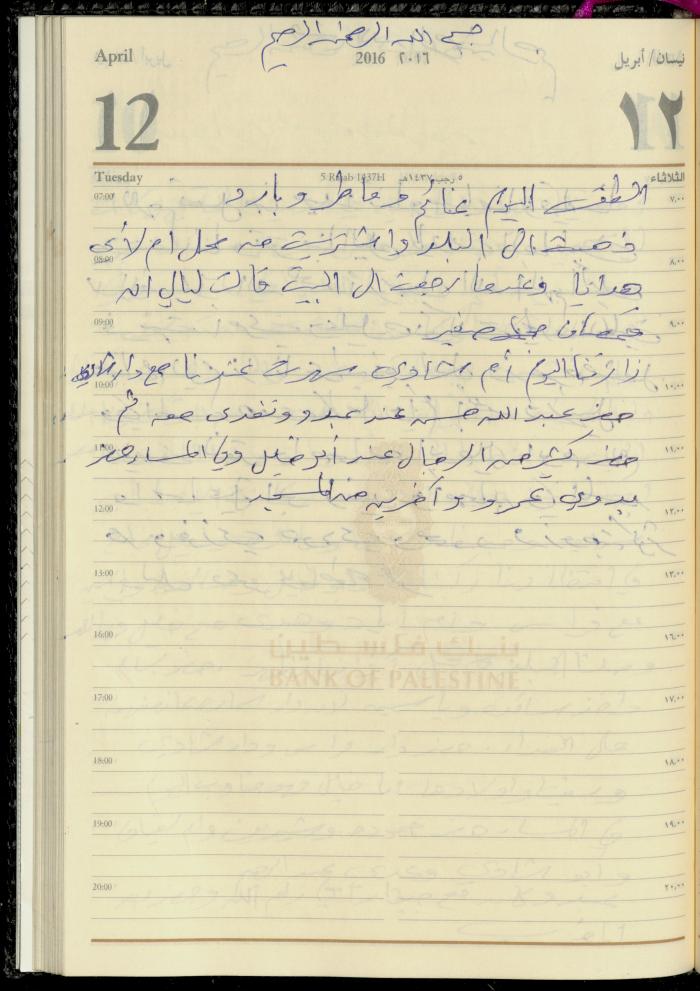 بسم الله الرحمن الرحيم
April 2016 ٢٠١٦ نيسان/أبريل
12 ١٢
Tuesday 5 Rajab 1437H ٥ رجب ١٤٣٧هـ الثلاثاء
الطقس اليوم غائم وماطر وبارد
07:00 ٧,٠٠
ذهبت الى البلد واشتريت من محل ام لأي
08:00 ٨,٠٠
هدايا وعندما رجعت الى البيت قالت ليالي ان
09:00 ٩,٠٠
صغير
زارتنا اليوم أم شادي سهرت عندنا مع دار
10:00 ١٠,٠٠
حضر عبد الله حسن عند عبدو وتغدى معه ثم
11:00 ١١,٠٠
حضر كثير من الرجال عند أبو خليل وفي المساء حضر
12:00 ١٢,٠٠
بدوي وآخرين من المسجد
13:00 ١٣,٠٠
16:00 ١٦,٠٠
بنك فلسطين
BANK OF PALESTINE
17:00 ١٧,٠٠
18:00 ١٨,٠٠
19:00 ١٩,٠٠
20:00 ٢٠,٠٠